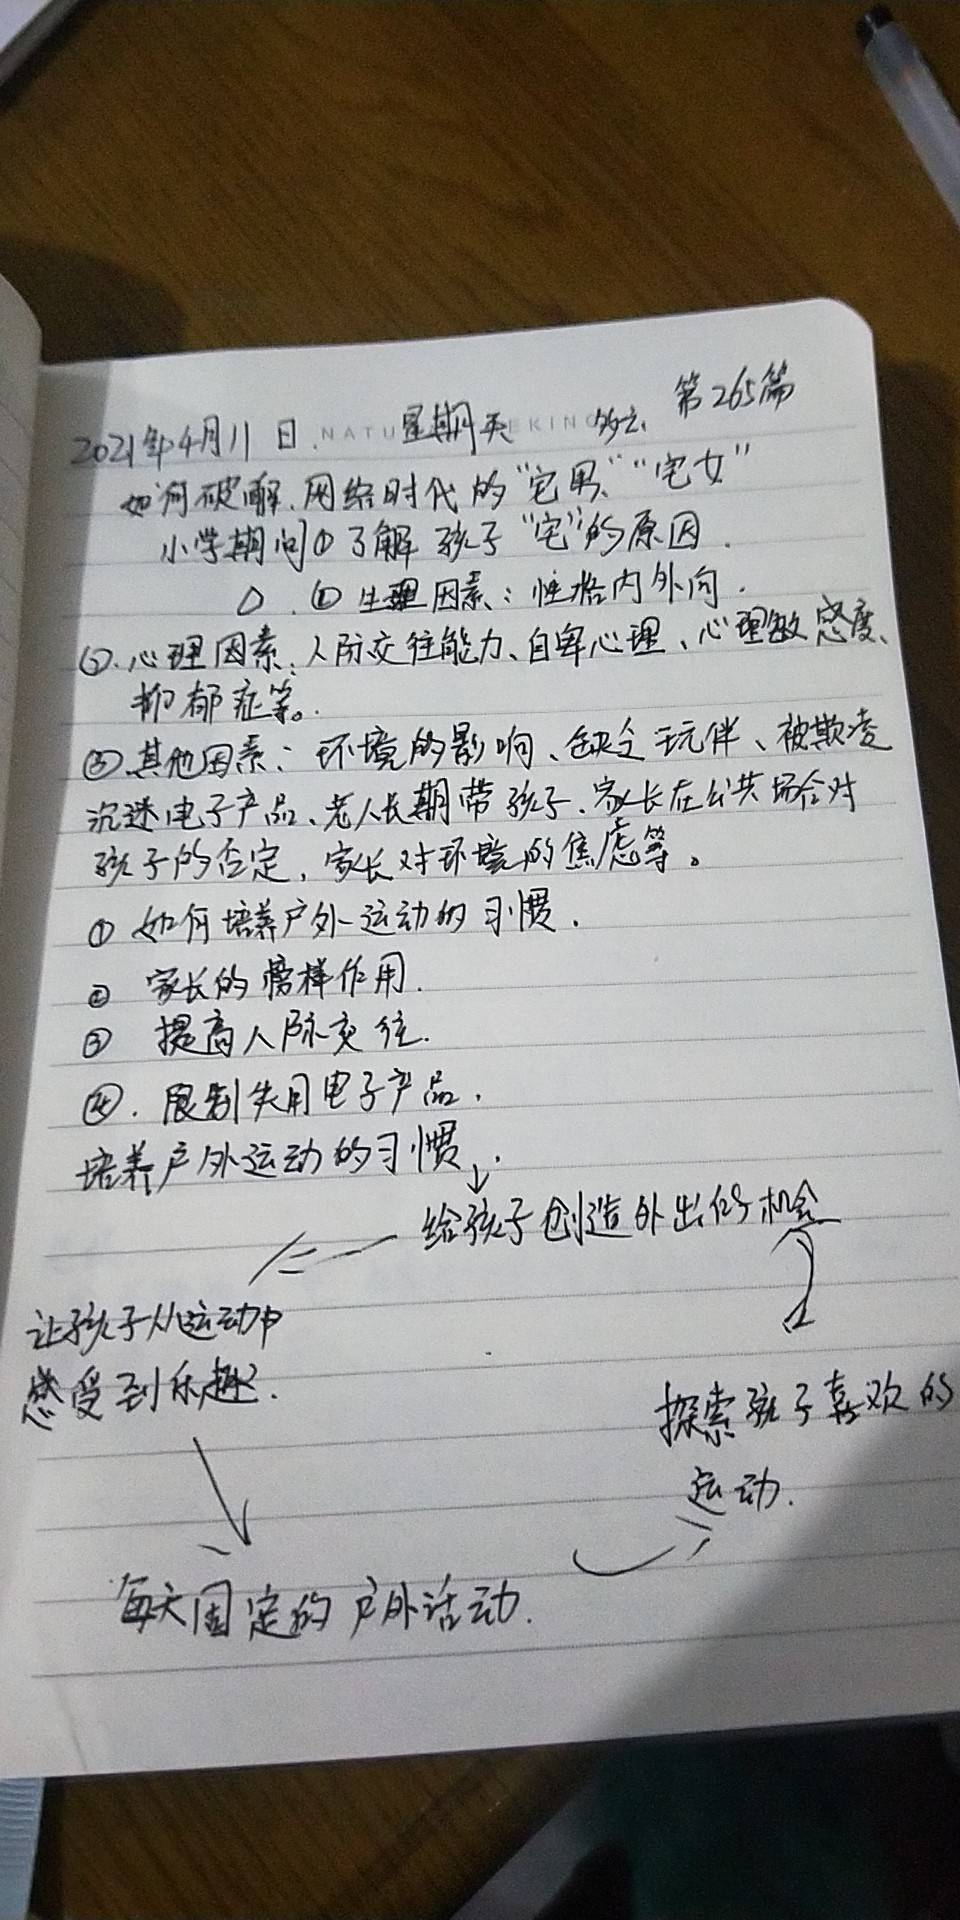 第265篇
2021年4月11日. 星期天
如何破解.网络时代的“宅男”“宅女”
小学期间①了解孩子“宅”的原因.
△.①生理因素:性格内外向.
②.心理因素:人际交往能力、自卑心理、心理敏感度、
抑郁症等。
③.其他因素:环境的影响、缺乏玩伴、被欺凌
沉迷电子产品、老人长期带孩子、家长在公共场合对
孩子的否定,家长对环境的焦虑等。
① 如何培养户外运动的习惯.
② 家长的榜样作用.
③ 提高人际交往.
④. 限制失用电子产品.
培养户外运动的习惯.
给孩子创造外出的机会
让孩子从运动中
感受到乐趣.
探索孩子喜欢的
运动.
每天固定的户外活动.